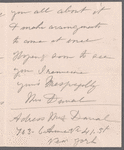 you all about it
I make arrangements
to come at once
Hoping soon to see
you I remain
yours Respectfully
Mrs Daniel
Adress Mrs Daniel
St
New York